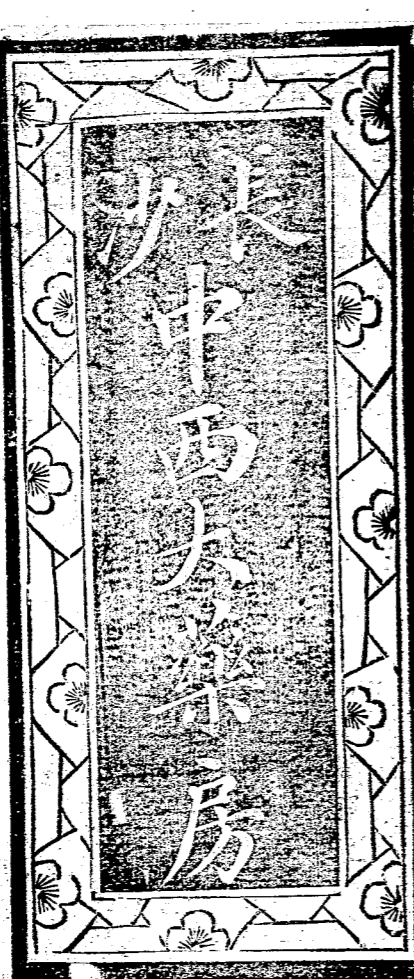 長沙
中西大藥房